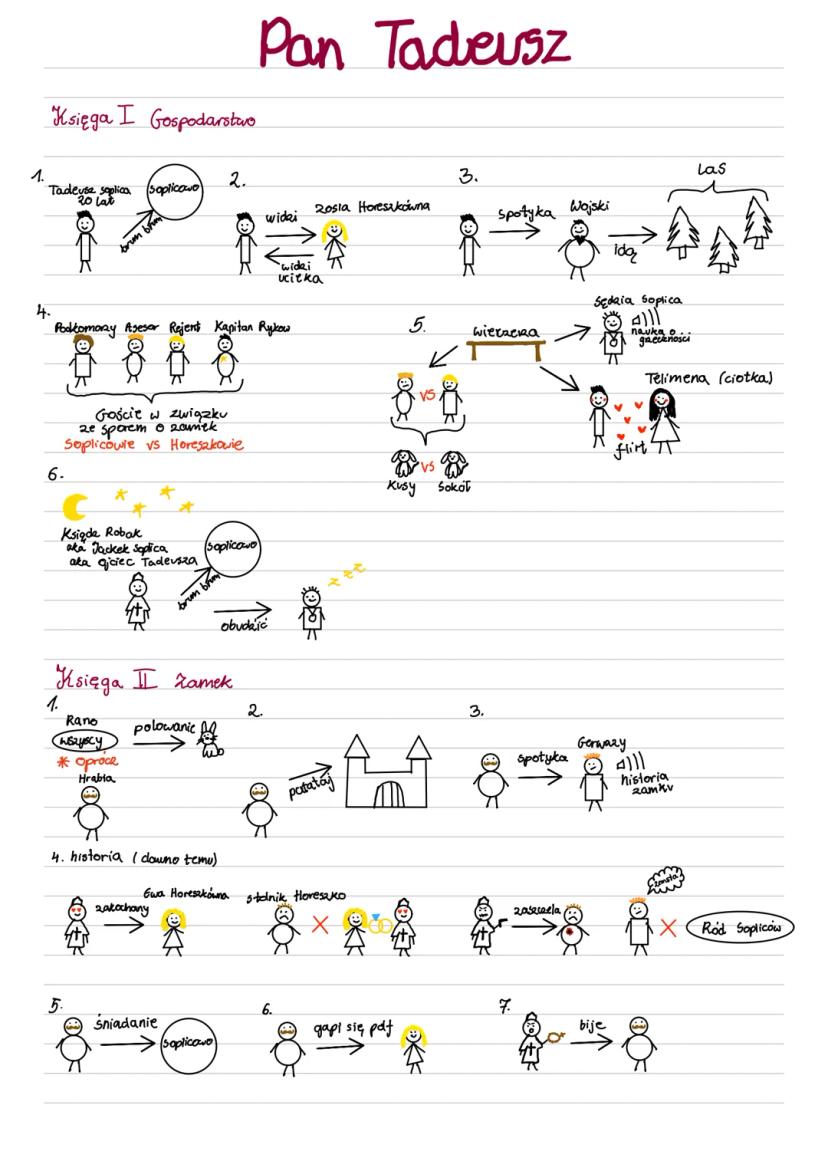 Pan Tadeusz
Księga I Gospodarstwo
1.
Tadeusz Soplica
20 lat
Soplicowo
brum brum
2.
widzi
Zosia Horeszkówna
widzi
ucieka
3.
spotyka
Wojski
idą
Las
4.
Podkomorzy Asesor Rejent Kapitan Rykow
Goście w związku
ze sporem o zamek
Soplicowie vs Horeszkowie
5.
wieczerza
Sędzia Soplica
nauka o...
grzeczności
VS
Telimena (ciotka)
flirt
VS
Kusy Sokół
6.
Księdz Robak
aka Jackek Soplica
aka ojciec Tadeusza
Soplicowo
brum brum
obudzić
z z z
Księga II Zamek
1.
Rano
wszyscy
polowanie
* oprócz
Hrabia
2.
patataj
3.
spotyka
Gerwazy
historia
zamku
4. historia (dawno temu)
zakochany
Ewa Horeszkówna
stolnik Horeszko
zastrzela
zemsta
Ród Sopliców
5.
śniadanie
Soplicowo
6.
gapi się pdf
7.
bije